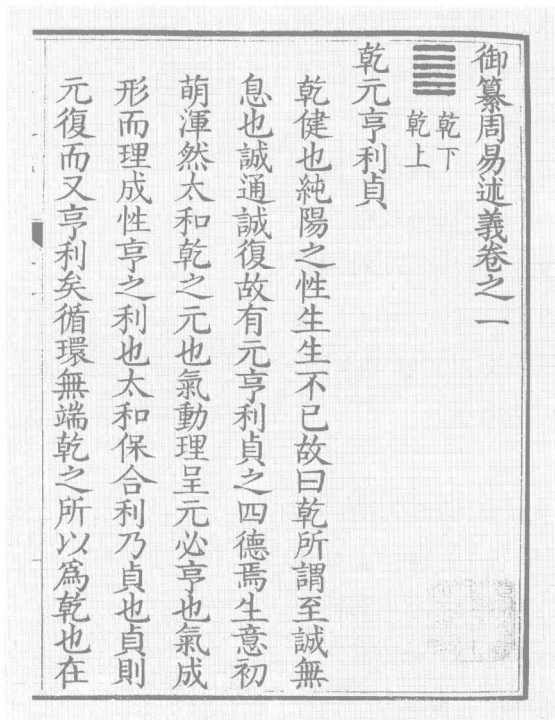 御纂周易述義卷之一
乾下
乾上
乾元亨利貞
乾健也純陽之性生生不已故曰乾所謂至誠無
息也誠通誠復故有元亨利貞之四德焉生意初
萌渾然太和乾之元也氣動理呈元必亨也氣成
形而理成性亨之利也太和保合利乃貞也貞則
元復而又亨利矣循環無端乾之所以爲乾也在